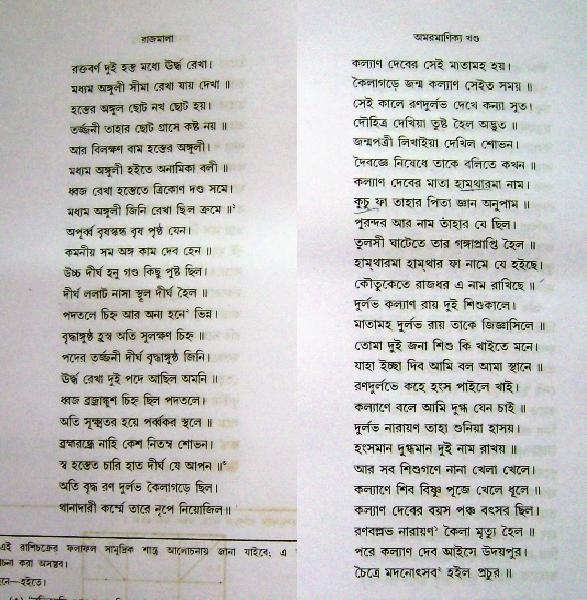 রাজমালা
রক্তবর্ণ দুই হস্ত মধ্যে ঊর্দ্ধ রেখা।
মধ্যম অঙ্গুলী সীমা রেখা যায় দেখা ॥
হস্তের অঙ্গুল ছোট নখ ছোট হয়।
তর্জ্জনী তাহার ছোট গ্রাসে কষ্ট নয় ॥
আর বিলক্ষণ বাম হস্তের অঙ্গুলী।
মধ্যম অঙ্গুলী হইতে অনামিকা বলী ॥
ধ্বজ রেখা হস্তেতে ত্রিকোণ দণ্ড সমে।
মধ্যম অঙ্গুলী জিনি রেখা ছিল ক্রমে ॥¹
অপূর্ব্ব বৃষস্কন্ধ বৃষ পৃষ্ঠ যেন।
কমনীয় সম অঙ্গ কাম দেব হেন ॥
উচ্চ দীর্ঘ হনু গণ্ড কিছু পুষ্ট ছিল।
দীর্ঘ ললাট নাসা স্থূল দীর্ঘ হৈল ॥
পদতলে চিহ্ন আর অন্য হনে² ভিন্ন।
বৃদ্ধাঙ্গুষ্ঠ হ্রস্ব অতি সুলক্ষণ চিহ্ন ॥
পদের তর্জ্জনী দীর্ঘ বৃদ্ধাঙ্গুষ্ঠ জিনি।
ঊর্দ্ধ রেখা দুই পদে আছিল অমনি ॥
ধ্বজ ব্রজাঙ্কুশ চিহ্ন ছিল পদতলে।
অতি সূক্ষ্মতর হয়ে পর্ব্বকর স্থলে ॥
ব্রহ্মরন্ধ্রে নাহি কেশ নিতম্ব শোভন।
স্ব হস্তেত চারি হাত দীর্ঘ যে আপন ॥⁩
অতি বৃদ্ধ রণ দুর্লভ কৈলাগড়ে ছিল।
থানাদারী কর্ম্মে তারে নৃপে নিয়োজিল॥
এই রাশিচক্রের ফলাফল সামুদ্রিক শাস্ত্র আলোচনায় জানা যাইবে; এ
চনা করা অসম্ভব।
নে—হইতে।
অমরমাণিক্য খণ্ড
কল্যাণ দেবের সেই মাতামহ হয়।
কৈলাগড়ে জন্ম কল্যাণ সেইত সময় ॥
সেই কালে রণদুর্লভ দেখে কন্যা সুত।
দৌহিত্র দেখিয়া তুষ্ট হৈল অদ্ভুত ॥
জন্মপত্রী লিখাইয়া দেখিল শোভন।
দৈবজ্ঞে নিষেধে তাকে বলিতে কখন ॥
কল্যাণ দেবের মাতা হাম্‌থারমা নাম।
কুচু ফা তাহার পিতা জ্ঞান অনুপাম ॥
পুরন্দর আর নাম তাঁহার যে ছিল।
তুলসী ঘাটেতে তার গঙ্গাপ্রাপ্তি হৈল ॥
হাম্‌থারমা হাম্‌থার ফা নামে যে হইছে।
কৌতুকেতে রাজধর এ নাম রাখিছে ॥
দুর্লভ কল্যাণ রায় দুই শিশুকালে।
মাতামহ দুর্লভ রায় তাকে জিজ্ঞাসিলে ॥
তোমা দুই জনা শিশু কি খাইতে মনে।
যাহা ইচ্ছা দিব আমি বল আমা স্থানে ॥
রণদুর্লভে কহে হংস পাইলে খাই।
কল্যাণে বলে আমি দুগ্ধ যেন চাই ॥
দুর্লভ নারায়ণ তাহা শুনিয়া হাসয়।
হংসমান দুগ্ধমান দুই নাম রাখয় ॥
আর সব শিশুগণে নানা খেলা খেলে।
কল্যাণে শিব বিষ্ণু পূজে খেলে ধূলে ॥
কল্যাণ দেবের বয়স পঞ্চ বৎসর ছিল।
রণবল্লভ নারায়ণ¹ কৈলা মৃত্যু হৈল ॥
পরে কল্যাণ দেব আইসে উদয়পুর।
চৈত্রে মদনোৎসব² হইল প্রচুর ॥